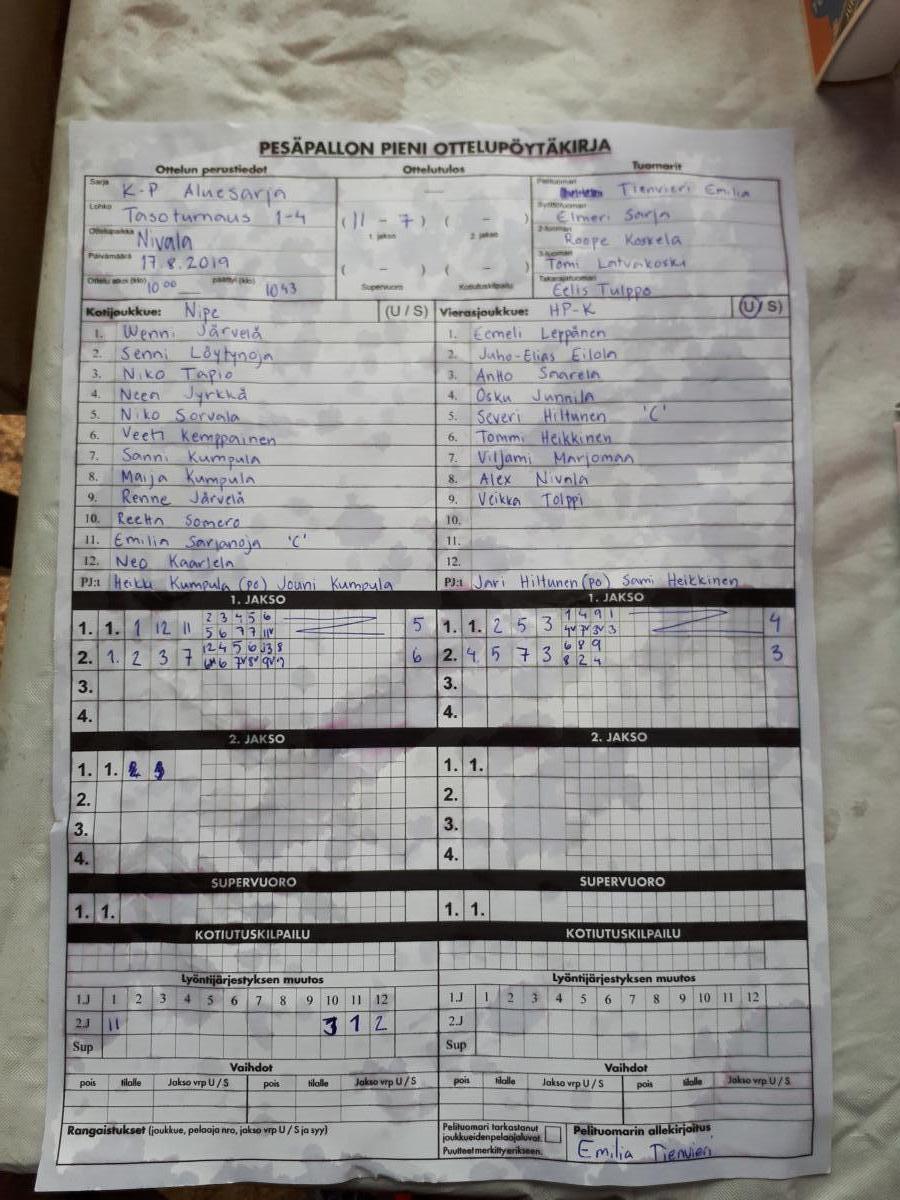 PESÄPALLON PIENI OTTELUPÖYTÄKIRJA
Ottelun perustiedot Ottelutulos Tuomarit
Sarja K-P Aluesarja
Lohko Tasoturnaus 1-4
Ottelupaikka Nivala
Päivämäärä 17.8.2019
Ottelu alkoi (klo) 10 00 päättyi (klo) 10 43
(11 - 7) ( - )
1. jakso 2. jakso
( - ) ( - )
Supervuoro Kotiutuskilpailu
Pelituomari Tienvieri Emilia
Syöttötuomari Elmeri Sarja
2-tuomari Roope Koskela
3-tuomari Tomi Latvakoski
Takarajatuomari Eelis Tulppo
Kotijoukkue: Nipe (U / S)
1. Wenni Järvelä
2. Senni Löytynoja
3. Niko Tapio
4. Neea Jyrkkä
5. Niko Sorvala
6. Veeti Kemppainen
7. Sanni Kumpula
8. Maija Kumpula
9. Renne Järvelä
10. Reetta Somero
11. Emilia Sarjanoja 'C'
12. Neo Kaarlela
PJ:t Heikki Kumpula (po) Jouni Kumpula
Vierasjoukkue: HP-K (U / S)
1. Eemeli Leppänen
2. Juho-Elias Eilola
3. Antto Saarela
4. Osku Junnila
5. Severi Hiltunen 'C'
6. Tommi Heikkinen
7. Viljami Marjomaa
8. Alex Nivala
9. Veikka Tolppi
10.
11.
12.
PJ:t Jari Hiltunen (po) Sami Heikkinen
1. JAKSO
1. 1. 1 12 11 2 3 4 5 6 5
2. 1. 2 3 7 6
3.
4.
1. JAKSO
1. 1. 2 5 3 1 4 9 1 4
2. 4. 5 7 3 6 8 9 8 2 4 3
3.
4.
2. JAKSO
1. 1.
2.
3.
4.
2. JAKSO
1. 1.
2.
3.
4.
SUPERVUORO
1. 1.
SUPERVUORO
1. 1.
KOTIUTUSKILPAILU
KOTIUTUSKILPAILU
Lyöntijärjestyksen muutos
1.J 1 2 3 4 5 6 7 8 9 10 11 12
2.J 11 3 1 2
Sup
Lyöntijärjestyksen muutos
1.J 1 2 3 4 5 6 7 8 9 10 11 12
2.J
Sup
Vaihdot
pois tilalle Jakso vrp U / S pois tilalle Jakso vrp U / S
Vaihdot
pois tilalle Jakso vrp U / S pois tilalle Jakso vrp U / S
Rangaistukset (joukkue, pelaaja nro, jakso vrp U / S ja syy)
Pelituomari tarkastanut
joukkueiden pelaajaluvat.
Puutteet merkitty erikseen.
Pelituomarin allekirjoitus
Emilia Tienvieri